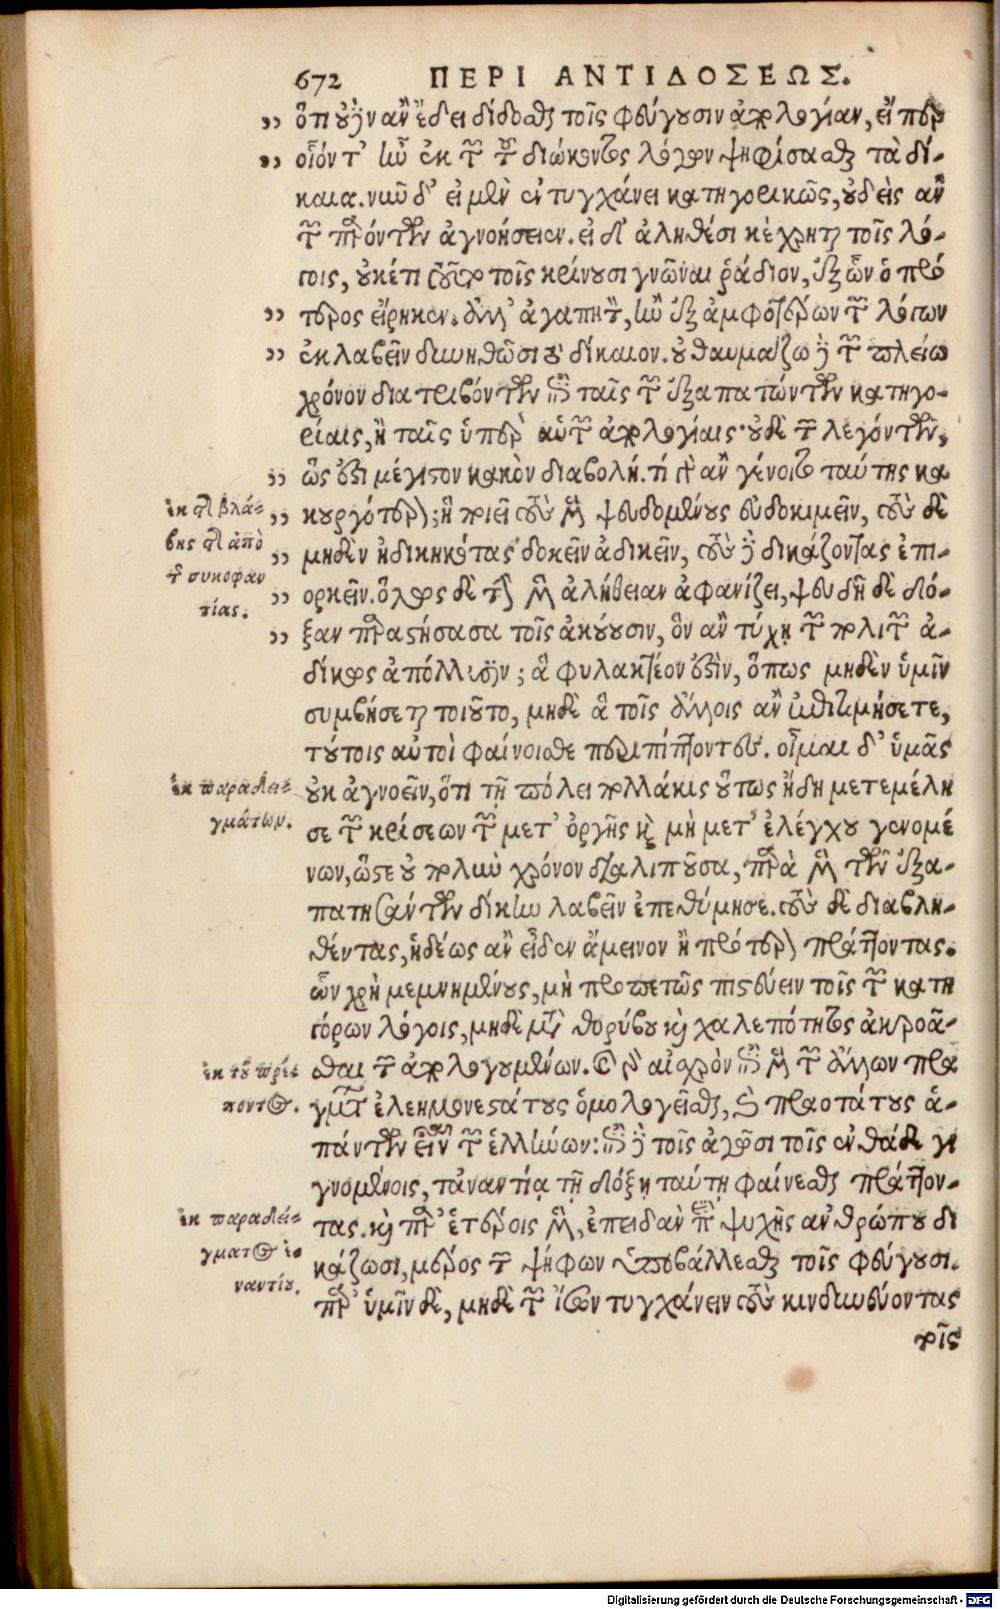 672 ΠΕΡΙ ΑΝΤΙΔΟΣΕΩΣ.
,, ὅτι οὐδὲν ἂν ἔδει δίδοσθαι τοῖς φεύγουσιν ἀπολογίαν, εἴπερ
,, οἷόν τ' ἦν ἐκ τῶν τοῦ διώκοντος λόγων ψηφίσασθαι τὰ δί-
καια. νῦν δ' εἰ μὲν ἐντυγχάνει κατηγορικῶς, οὐδεὶς ἂν
τῶν παρόντων ἀγνοήσειεν. εἰ δ' ἀληθέσι κέχρηται τοῖς λό-
γοις, οὐκέτι τοῦτο τοῖς κρίνουσι γνῶναι ῥάδιον, ἐξ ὧν ὁ πρό
,, τερος εἴρηκεν. ἀλλ' ἀγαπητὸν, ἢν ἐξ ἀμφοτέρων τῶν λόγων
,, ἐκλαβεῖν δυνηθῶσι τὸ δίκαιον. οὐ θαυμάζω δὲ τῶν πλείω
χρόνον διατριβόντων ἐπὶ ταῖς τῶν ἐξαπατώντων κατηγο-
ρίαις, ἢ ταῖς ὑπὲρ αὑτῶν ἀπολογίαις· οὐδὲ τῶν λεγόντων,
,, ὡς ἔστι μέγιστον κακὸν διαβολή. τί γὰρ ἂν γένοιτο ταύτης κα
ἐκ τῆς βλά-
,, κουργότερον; ἣ ποιεῖ τοὺς μὲν ψευδομένους εὐδοκιμεῖν, τοὺς δὲ
βης τῆς ἀπὸ
,, μηδὲν ἠδικηκότας δοκεῖν ἀδικεῖν, τοὺς δὲ δικάζοντας ἐπι-
τῆς συκοφαν
,, ορκεῖν. ὅλως δὲ τὴν μὲν ἀλήθειαν ἀφανίζει, ψευδῆ δὲ δό-
τίας.
,, ξαν παραστήσασα τοῖς ἀκούουσιν, ὃν ἂν τύχῃ τῶν πολιτῶν ἀ-
δίκως ἀπόλλυσιν; ἃ φυλακτέον ἐστὶν, ὅπως μηδὲν ὑμῖν
συμβήσεται τοιοῦτο, μηδὲ ἃ τοῖς ἄλλοις ἂν ἐπιτιμήσετε,
τούτοις αὐτοὶ φαίνοισθε περιπίπτοντες. οἶμαι δ' ὑμᾶς
ἐκ παραδει-
οὐκ ἀγνοεῖν, ὅτι τῇ πόλει πολλάκις οὕτως ἤδη μετεμέλη
γμάτων.
σε τῶν κρίσεων τῶν μετ' ὀργῆς καὶ μὴ μετ' ἐλέγχου γενομέ
νων, ὥστε οὐ πολὺν χρόνον διαλιποῦσα, παρὰ μὲν τῶν ἐξα-
πατησάντων δίκην λαβεῖν ἐπεθύμησε. τοὺς δὲ διαβλη-
θέντας, ἡδέως ἂν εἶδεν ἄμεινον ἢ πρότερον πράττοντας.
ὧν χρὴ μεμνημένους, μὴ προπετῶς πιστεύειν τοῖς τῶν κατη
γόρων λόγοις, μηδὲ μετὰ θορύβου καὶ χαλεπότητος ἀκροᾶ-
ἐκ τοῦ πρέ-
σθαι τῶν ἀπολογουμένων. καὶ γὰρ αἰσχρὸν ἐπὶ μὲν τῶν ἄλλων πρα
ποντος.
γμάτων ἐλεημονεστάτους ὁμολογεῖσθαι, καὶ πραοτάτους ἁ-
πάντων εἶναι τῶν ἑλλήνων: ἐπὶ δὲ τοῖς ἀγῶσι τοῖς ἐνθάδε γι
γνομένοις, τἀναντία τῇ δόξῃ ταύτῃ φαίνεσθαι πράττον-
ἐκ παραδεί-
τας. καὶ παρ' ἑτέροις μὲν, ἐπειδὰν περὶ ψυχῆς ἀνθρώπου δι
γματος ἐ
κάζωσι, μέρος τι τῶν ψήφων ὑποβάλλεσθαι τοῖς φεύγουσι.
ναντίου.
παρ' ὑμῖν δὲ, μηδὲ τῶν ἴσων τυγχάνειν τοὺς κινδυνεύοντας
τοῖς
Digitalisierung gefördert durch die Deutsche Forschungsgemeinschaft - DFG